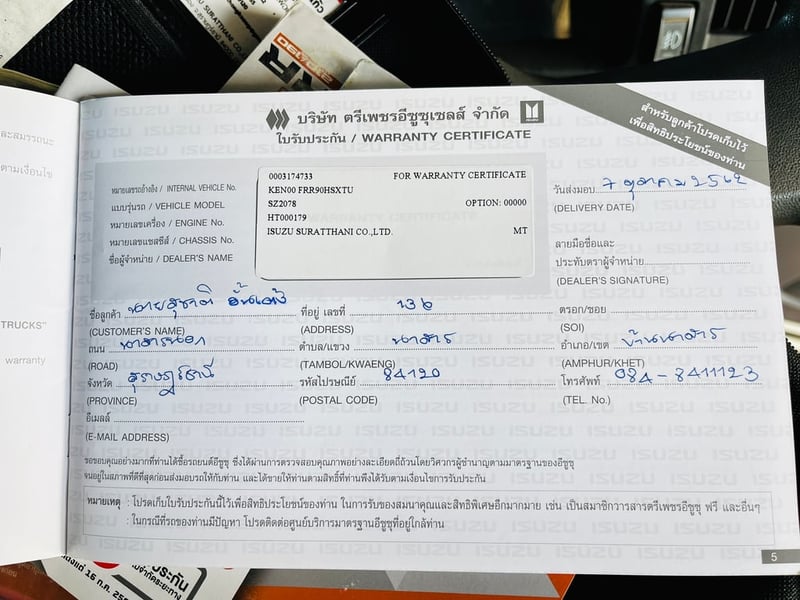 บริษัท ตรีเพชรอีซูซุเซลส์ จำกัด
ใบรับประกัน / WARRANTY CERTIFICATE
สำหรับลูกค้าโปรดเก็บไว้
เพื่อสิทธิประโยชน์ของท่าน
หมายเลขรถอ้างอิง / INTERNAL VEHICLE No.
แบบรุ่นรถ / VEHICLE MODEL
หมายเลขเครื่อง / ENGINE No.
หมายเลขแชสซีส์ / CHASSIS No.
ชื่อผู้จำหน่าย / DEALER'S NAME
0003174733 FOR WARRANTY CERTIFICATE
KEN00 FRR90HSXTU
SZ2078 OPTION: 00000
HT000179
ISUZU SURATTHANI CO.,LTD. MT
วันส่งมอบ 7 ตุลาคม 2562
(DELIVERY DATE)
ลายมือชื่อและ
ประทับตราผู้จำหน่าย
(DEALER'S SIGNATURE)
ชื่อลูกค้า นายสุชาติ ที่อยู่ เลขที่ 136 ตรอก/ซอย
(CUSTOMER'S NAME) (ADDRESS) (SOI)
ถนน นาสารนอก ตำบล/แขวง นาสาร อำเภอ/เขต บ้านนาสาร
(ROAD) (TAMBOL/KWAENG) (AMPHUR/KHET)
จังหวัด สุราษฎร์ธานี รหัสไปรษณีย์ 84120 โทรศัพท์ 084-8411123
(PROVINCE) (POSTAL CODE) (TEL. No.)
อีเมลล์
(E-MAIL ADDRESS)
ขอขอบคุณอย่างมากที่ท่านได้ซื้อรถยนต์อีซูซุ ซึ่งได้ผ่านการตรวจสอบคุณภาพอย่างละเอียดถี่ถ้วนโดยวิศวกรผู้ชำนาญตามมาตรฐานของอีซูซุ
จนอยู่ในสภาพที่ดีที่สุดก่อนส่งมอบรถให้กับท่าน และได้ขายให้ท่านตามสิทธิ์ที่ท่านพึงได้รับตามเงื่อนไขการรับประกัน
หมายเหตุ : โปรดเก็บใบรับประกันนี้ไว้เพื่อสิทธิประโยชน์ของท่าน ในการรับของสมนาคุณและสิทธิพิเศษอีกมากมาย เช่น เป็นสมาชิกวารสารตรีเพชรอีซูซุ ฟรี และอื่นๆ
: ในกรณีที่รถของท่านมีปัญหา โปรดติดต่อศูนย์บริการมาตรฐานอีซูซุที่อยู่ใกล้ท่าน
5
TRUCKS"
warranty